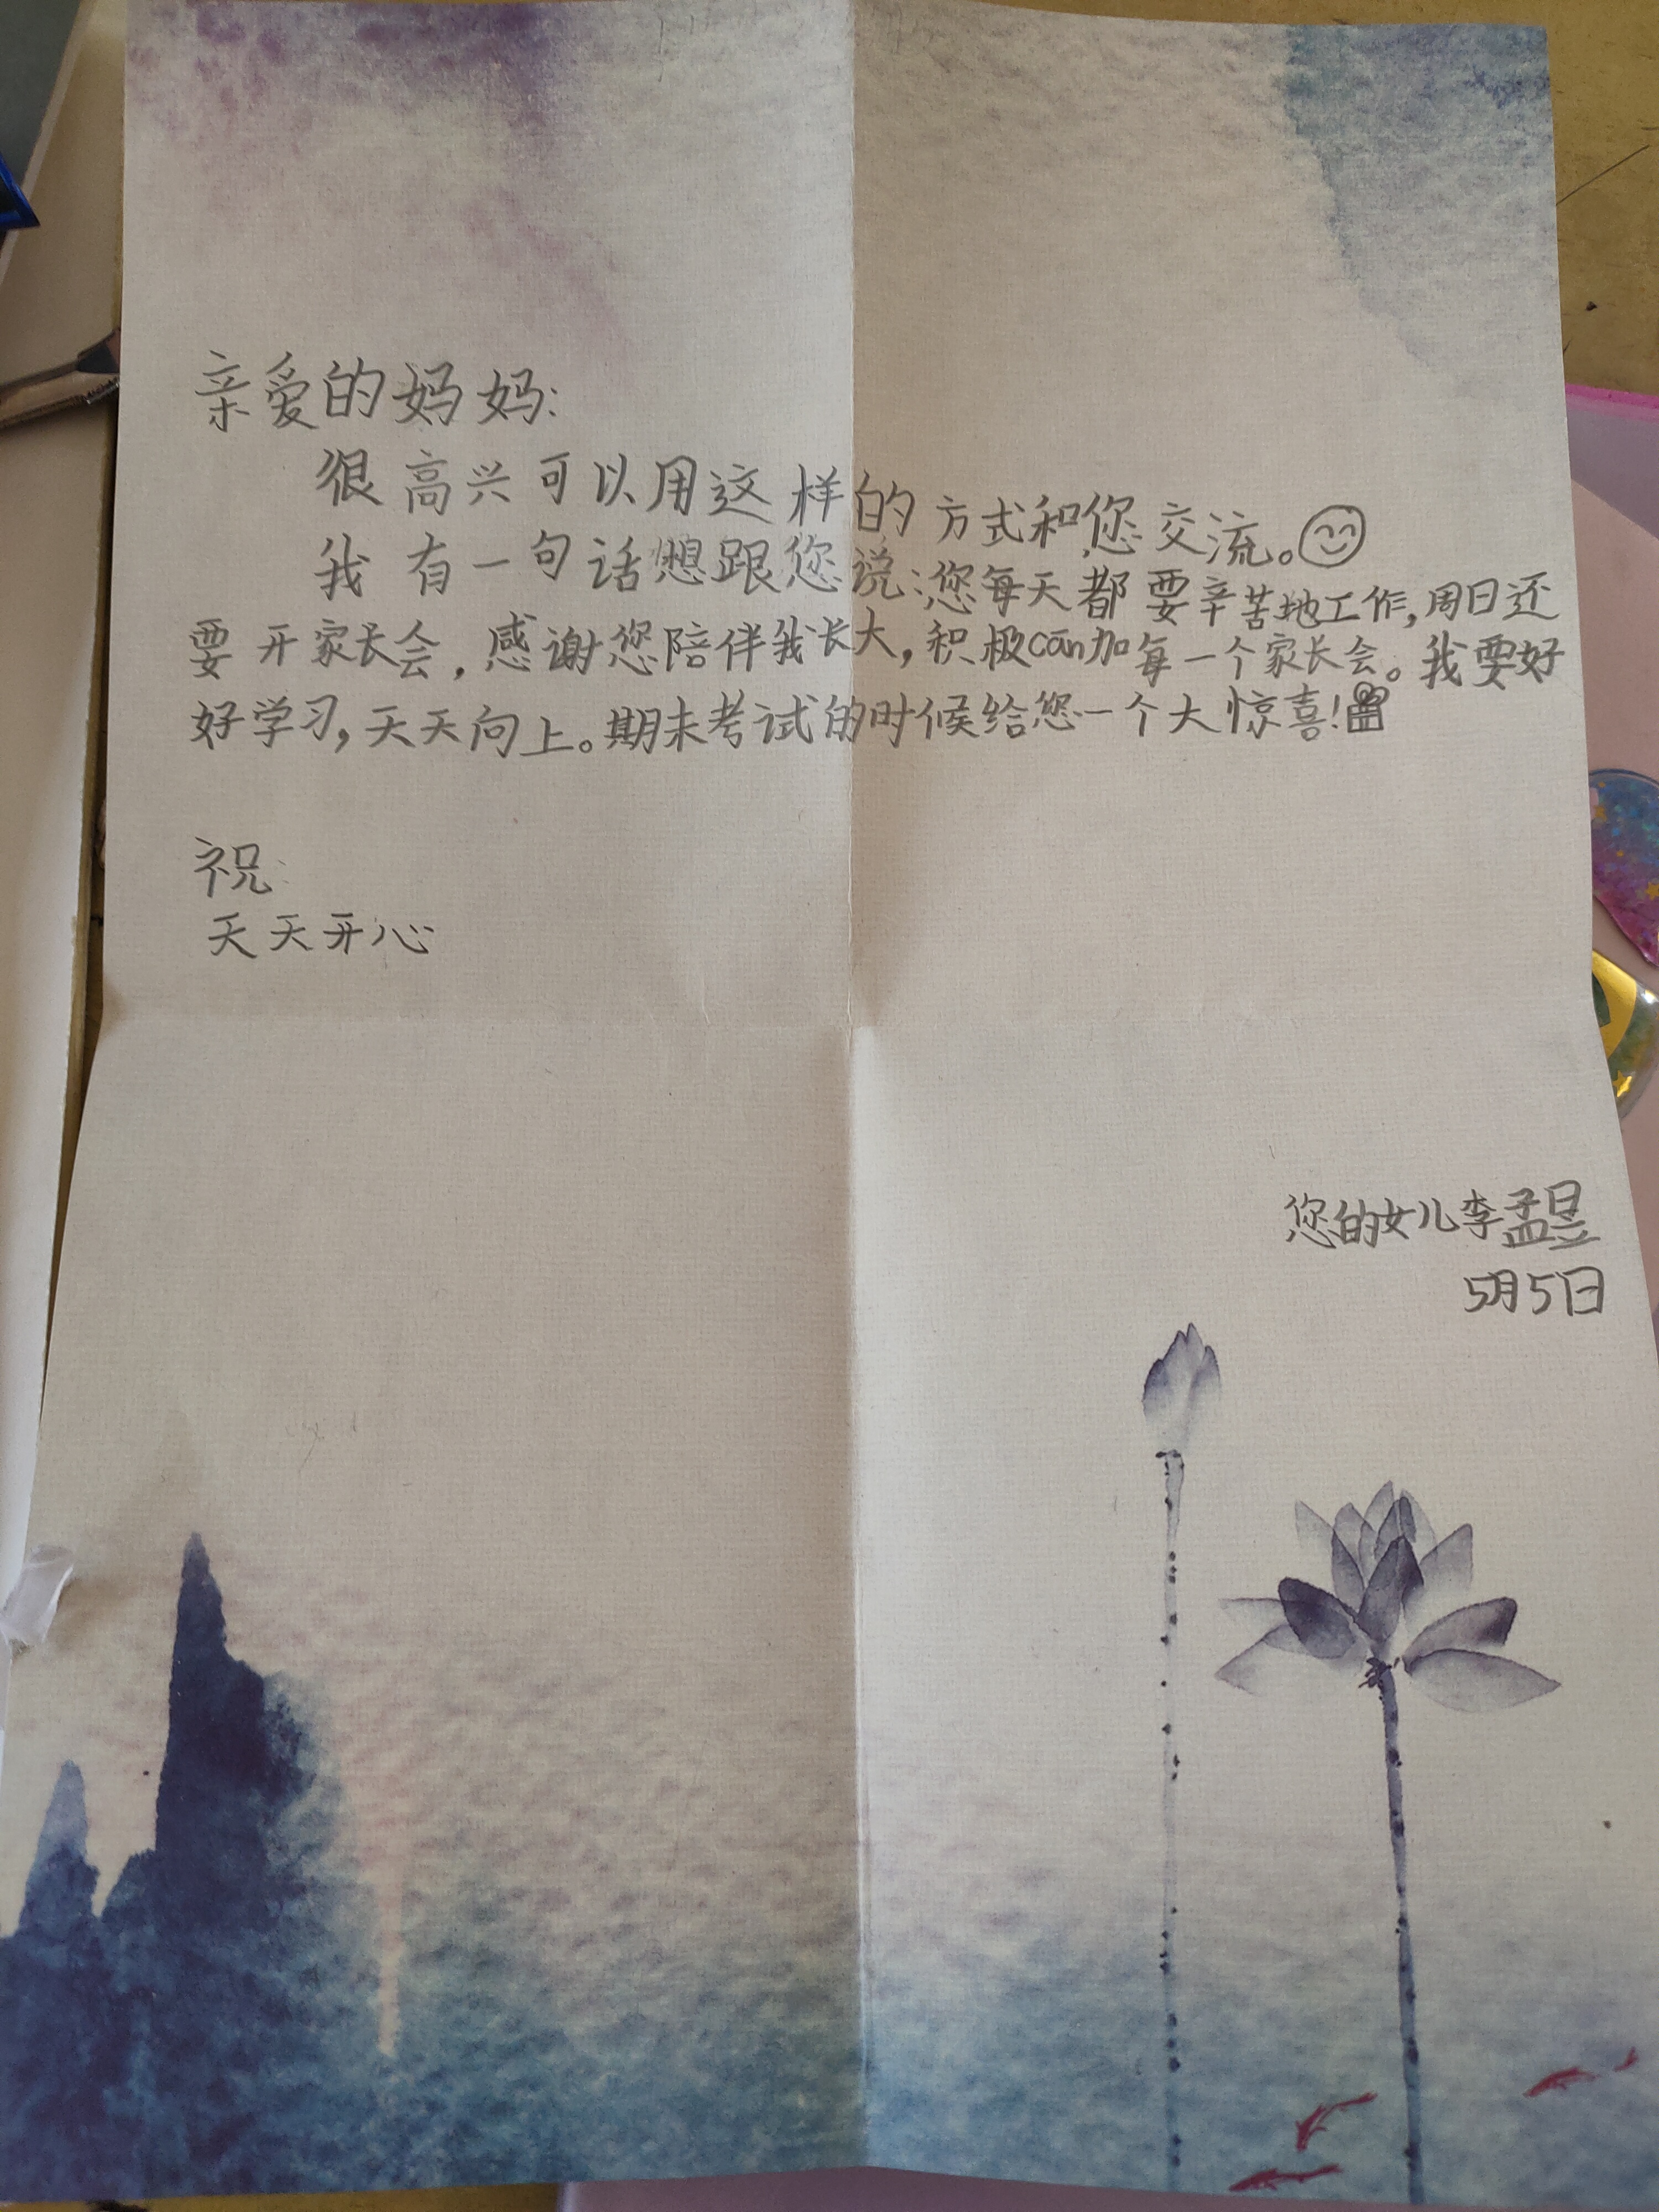 亲爱的妈妈:
很高兴可以用这样的方式和您交流。
我有一句话想跟您说:您每天都要辛苦地工作,周日还
要开家长会,感谢您陪伴我长大,积极cān加每一个家长会。我要好
好学习,天天向上。期末考试的时候给您一个大惊喜!
祝:
天天开心
您的女儿李孟昱
5月5日